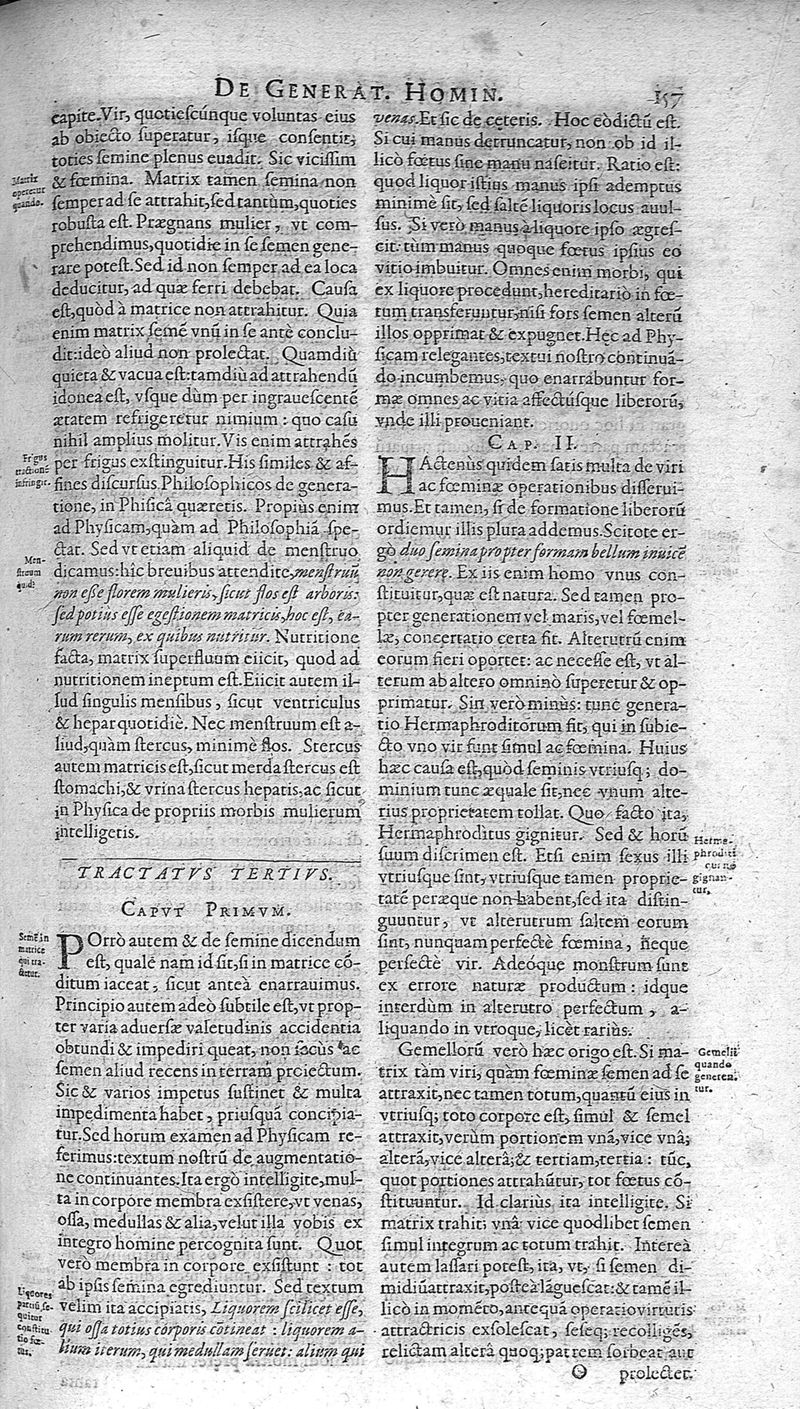 DE GENERAT. HOMIN.
157
capite. Vir, quotieſcúnque voluntas eius
ab obiecto ſuperatur, iſque conſentit,
toties ſemine plenus euadit. Sic viciſſim
& fœmina. Matrix tamen ſemina non
ſemper ad ſe attrahit, ſed tantùm, quoties
robuſta eſt. Prægnans mulier, vt com-
prehendimus, quotidie in ſe ſemen gene-
rare poteſt. Sed id non ſemper ad ea loca
deducitur, ad quæ ferri debebat. Cauſa
eſt, quòd à matrice non attrahitur. Quia
enim matrix ſemẽ vnũ in ſe antè conclu-
dit: ideò aliud non prolectat. Quamdiù
quieta & vacua eſt: tamdiù ad attrahendũ
idonea eſt, vſque dùm per ingraueſcentẽ
ætatem refrigeretur nimium: quo caſu
nihil amplius molitur. Vis enim attrahẽs
per frigus exſtinguitur. His ſimiles & af-
fines diſcurſus Philoſophicos de genera-
tione, in Phiſicâ quæretis. Propiùs enim
ad Phyſicam, quàm ad Philoſophiã ſpe-
ctat. Sed vt etiam aliquid de menſtruo
dicamus: hîc breuibus attendite, menſtruũ
non eſſe florem mulieris, ſicut flos eſt arboris:
ſed potiùs eſſe egeſtionem matricis, hoc eſt, ea-
rum rerum, ex quibus nutritur. Nutritione
facta, matrix ſuperfluum eiicit, quod ad
nutritionem ineptum eſt. Eiicit autem il-
lud ſingulis menſibus, ſicut ventriculus
& hepar quotidiè. Nec menſtruum eſt a-
liud, quàm ſtercus, minimè flos. Stercus
autem matricis eſt, ſicut merda ſtercus eſt
ſtomachi, & vrina ſtercus hepatis, ac ſicut
in Phyſica de propriis morbis mulierum
intelligetis.
Matrix
operetur
quando.
Frigus
attractionẽ
infringit.
Men-
ſtruum
quid?
TRACTATVS TERTIVS.
CAPVT PRIMVM.
POrrò autem & de ſemine dicendum
eſt, qualé nam id ſit, ſi in matrice cõ-
ditum iaceat, ſicut anteà enarrauimus.
Principio autem adeò ſubtile eſt, vt prop-
ter varia aduerſæ valetudinis accidentia
obtundi & impediri queat, non ſacùs ac
ſemen aliud recens in terram proiectum.
Sic & varios impetus ſuſtinet & multa
impedimenta habet, priuſquã concipia-
tur. Sed horum examen ad Phyſicam re-
ferimus: textum noſtrũ de augmentatio-
ne continuantes. Ita ergò intelligite, mul-
ta in corpore membra exſiſtere, vt venas,
oſſa, medullas & alia, velut illa vobis ex
integro homine percognita ſunt. Quot
verò membra in corpore exſiſtunt: tot
ab ipſis ſemina egrediuntur. Sed textum
velim ita accipiatis, Liquorem ſcilicet eſſe,
qui oſſa totius corporis cõtineat: liquorem a-
lium iterum, qui medullam ſeruet: alium qui
Semẽ in
matrice
qui tra-
ctetur.
Liquores
partiũ ſe-
quitur
conſtitu-
tio fœ-
tus.
venas. Et ſic de ceteris. Hoc eò dictũ eſt.
Si cui manus detruncatur, non ob id il-
licò fœtus ſine manu naſcitur. Ratio eſt:
quod liquor iſtius manus ipſi ademptus
minimè ſit, ſed ſaltẽ liquoris locus auul-
ſus. Si verò manus à liquore ipſo ægreſ-
cit: tùm manus quoque fœtus ipſius eo
vitio imbuitur. Omnes enim morbi, qui
ex liquore procedunt, hereditariò in fœ-
tum transferuntur, niſi fors ſemen alterũ
illos opprimat & expugnet. Hęc ad Phy-
ſicam relegantes, textui noſtro continuã-
do incumbemus, quo enarrabuntur for-
mæ omnes ac vitia affectúſque liberorũ,
vnde illi proueniant.
CAP. II.
HActenus quidem ſatis multa de viri
ac fœminæ operationibus diſſerui-
mus. Et tamen, ſi de formatione liberorũ
ordiemur illis plura addemus. Scitote er-
gò duo ſemina propter formam bellum inuicẽ
non gerere. Ex iis enim homo vnus con-
ſtituitur, quæ eſt natura. Sed tamen pro-
pter generationem vel maris, vel fœmel-
læ, concertatio certa fit. Alterutrũ enim
eorum fieri oportet: ac neceſſe eſt, vt al-
terum ab altero omninò ſuperetur & op-
primatur. Sin verò minùs: tunc genera-
tio Hermaphroditorum fit, qui in ſubie-
cto vno vir ſunt ſimul ac fœmina. Huius
hæc cauſa eſt, quòd ſeminis vtriuſq; do-
minium tunc æquale ſit, nec vnum alte-
rius proprietatem tollat. Quo facto ita,
Hermaphroditus gignitur. Sed & horũ
ſuum diſcrimen eſt. Etſi enim ſexus illi
vtriuſque ſint, vtriuſque tamen proprie-
tatẽ peræque non habent, ſed ita diſtin-
guuntur, vt alterutrum ſaltem eorum
ſint, nunquam perfectè fœmina, neque
perfectè vir. Adeóque monſtrum ſunt
ex errore naturæ productum: idque
interdùm in alterutro perfectum, a-
liquando in vtroque, licèt rariùs.
Gemellorũ verò hæc origo eſt. Si ma-
trix tàm viri, quàm fœminæ ſemen ad ſe
attraxit, nec tamen totum, quantũ eius in
vtriuſq; toto corpore eſt, ſimul & ſemel
attraxit, verùm portionem vnã, vice vnâ;
alterã, vice alterâ; & tertiam, tertia: tũc,
quot portiones attrahũtur, tot fœtus cõ-
ſtituuntur. Id clariùs ita intelligite. Si
matrix trahit: vnâ vice quodlibet ſemen
ſimul integrum ac totum trahit. Intereà
autem laſſari poteſt, ita, vt, ſi ſemen di-
midiũ attraxit, poſteà lãgueſcat: & tamẽ il-
licò in momẽto, antequã operatio virtutis
attractricis exſoleſcat, ſeſeq; recolligẽs,
relictam alterã quoq; partem ſorbeat aut
Herma-
phroditi
cur gignan-
tur.
Gemelli
quando
generen-
tur.
O
prolectet.